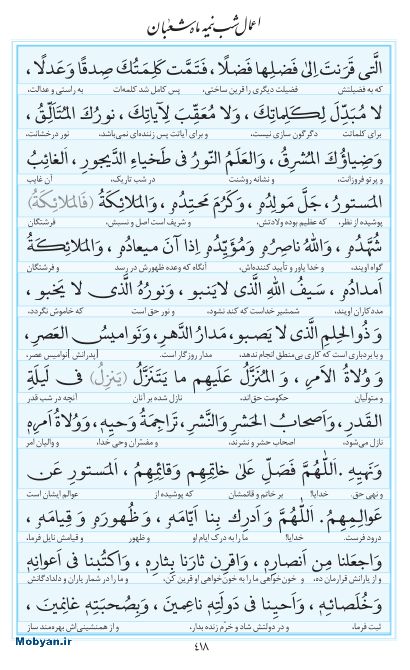 اعمال شب نیمه ماه شعبان
الَّتي قَرَنتَ اِلىٰ فَضلِها فَضلًا، فَتَمَّت كَلِمَتُكَ صِدقًا وَعَدلًا،
که به فضیلتش فضیلت دیگری را قرین ساختی، پس کامل شد کلمه‌ات به راستی و عدالت،
لا مُبَدِّلَ لِكَلِماتِكَ، وَلا مُعَقِّبَ لِآياتِكَ، نورُكَ المُتَأَلِّقُ،
برای کلماتت دگرگون سازی نیست، و برای آیاتت پس زننده‌ای نمی‌باشد، نور درخشانت،
وَضِياؤُكَ المُشرِقُ، وَالعَلَمُ النّورُ في طَخياءِ الدَّيجورِ، الغائِبُ
و پرتو فروزانت، و نشانه روشنت در شب تاریک، آن غایب
المَستورُ، جَلَّ مَولِدُهُ، وَكَرُمَ مَحتِدُهُ، وَالمَلائِكَةُ (فَالمَلائِكَةُ)
پوشیده از نظر، که عظیم بوده ولادتش، و شریف است اصل و نسبش، فرشتگان
شُهَّدُهُ، وَاللهُ ناصِرُهُ وَمُؤَيِّدُهُ اِذا آنَ ميعادُهُ، وَالمَلائِكَةُ
گواه اویند، و خدا یاور و تأیید کننده‌اش، آنگاه که وعده ظهورش در رسد و فرشتگان
اَمدادُهُ، سَيفُ اللهِ الَّذي لايَنبو، وَنورُهُ الَّذي لا يَخبو،
مددکاران اویند، شمشیر خداست که کند نشود، و نور حق است که خاموش نگردد،
وَذُوالحِلمِ الَّذي لا يَصبو، مَدارُ الدَّهرِ، وَنَواميسُ العَصرِ،
و با بردباری است که کاری بی‌منطق انجام ندهد، مدار روزگار است. [پدرانش] نوامیس عصر،
وَ وُلاةُ الاَمرِ، وَ المُنَزَّلُ عَلَيهِم ما يَتَنَزَّلُ (يَنزِلُ) في لَيلَةِ
و متولّیان حکومت حق‌اند، نازل شده بر آنان آنچه در شب قدر
القَدرِ، وَاَصحابُ الحَشرِ وَالنَّشرِ، تَراجِمَةُ وَحيِهِ، وَوُلاةُ اَمرِهِ
نازل می‌شود، اصحاب حشر و نشرند، و مفسّران وحی خدا، و والیان امر
وَنَهيِهِ. اَللّٰهُمَّ فَصَلِّ عَلىٰ خاتِمِهِم وَقائِمِهِمُ، المَستورِ عَن
و نهی حق. خدایا! بر خاتم و قائمشان که پوشیده از عوالم ایشان است
عَوالِمِهِم. اَللّٰهُمَّ وَ اَدرِك بِنا اَيّامَهُ، وَ ظُهورَهُ وَ قِيامَهُ،
درود فرست. خدایا! ما را به درک ایام او و ظهور و قیامش نایل فرما،
وَاجعَلنا مِن اَنصارِهِ، وَاقرِن ثارَنا بِثارِهِ، وَاكتُبنا في اَعوانِهِ
و از یارانش قرارمان ده، و خون‌خواهی ما را به خون‌خواهی او قرین کن، و ما را در شمار یاران و دلدادگانش
وَ خُلَصائِهِ، وَ اَحيِنا في دَولَتِهِ ناعِمينَ، وَ بِصُحبَتِهِ غانِمينَ،
ثبت فرما، و در دولتش شاد و خرّم زنده بدار، و از همنشینی‌اش بهره‌مند ساز
۴۱۸
Mobyan.ir